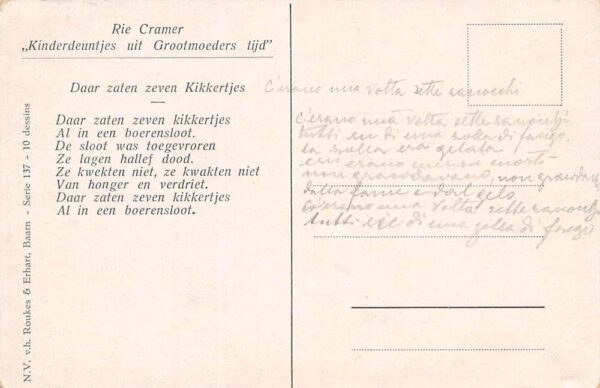 Rie Cramer
„Kinderdeuntjes uit Grootmoeders tijd”
Daar zaten zeven Kikkertjes
Daar zaten zeven kikkertjes
Al in een boerensloot.
De sloot was toegevroren
Ze lagen hallef dood.
Ze kwekten niet, ze kwakten niet
Van honger en verdriet.
Daar zaten zeven kikkertjes
Al in een boerensloot.
N.V. v.h. Roukes & Erhart, Baarn - Serie 137 - 10 dessins
C'erano una volta sette ranocchi
C'erano una volta sette
tutti in di una zolla di fango
la zolla era gelata
erano
non gracidavano, non
dalla fame e dal gelo
C'erano una volta sette
tutti di una di fango